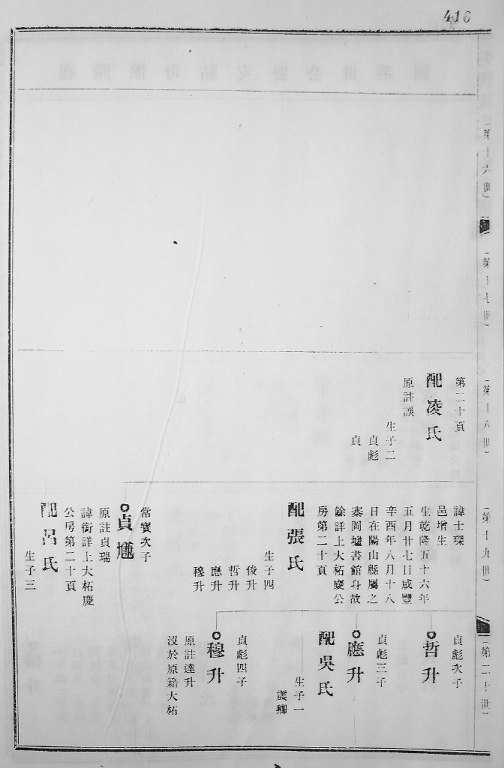 416
（第十六世）
（第十七世）
（第十八世）
（第十九世）
（第二十世）
第二十頁
配凌氏
原註誤
生子二
貞彪
貞
諱士琛
邑增生
生乾隆五十六年
五月廿七日咸豐
辛酉年八月十八
日在陽山縣屬之
寨岡墟書館身故
餘詳上大柘慶公
房第二十頁
配張氏
生子四
俊升
哲升
應升
穆升
常賓次子
貞尴
原註貞瑞
諱街詳上大柘慶
公房第二十頁
配呂氏
生子三
貞彪次子
哲升
貞彪三子
應升
配吳氏
生子一
貞彪四子
穆升
原註達升
沒於原籍大柘